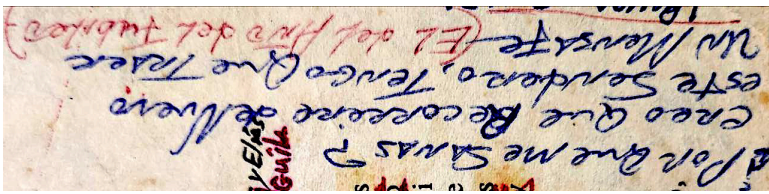 ¿Por que me Sanas?
Creo Que Recorrire de Nuevo
este Sendero, Tengo Que Traer
Un Mensaje (El del Año del Jubileo)